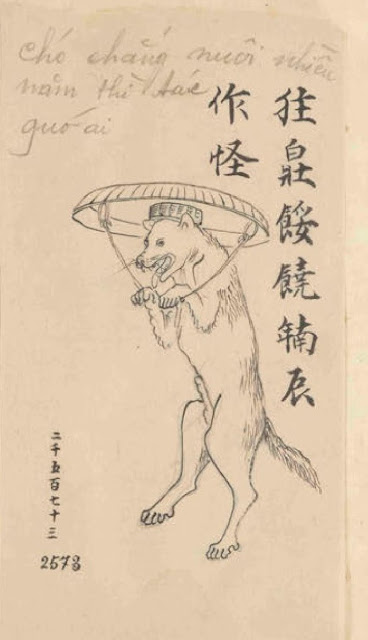 chó chẳng nuôi nhiều
năm thì tác
quớ ai
㹥𤽸餒饒𢆥辰
作怪
二千五百七十三
2573